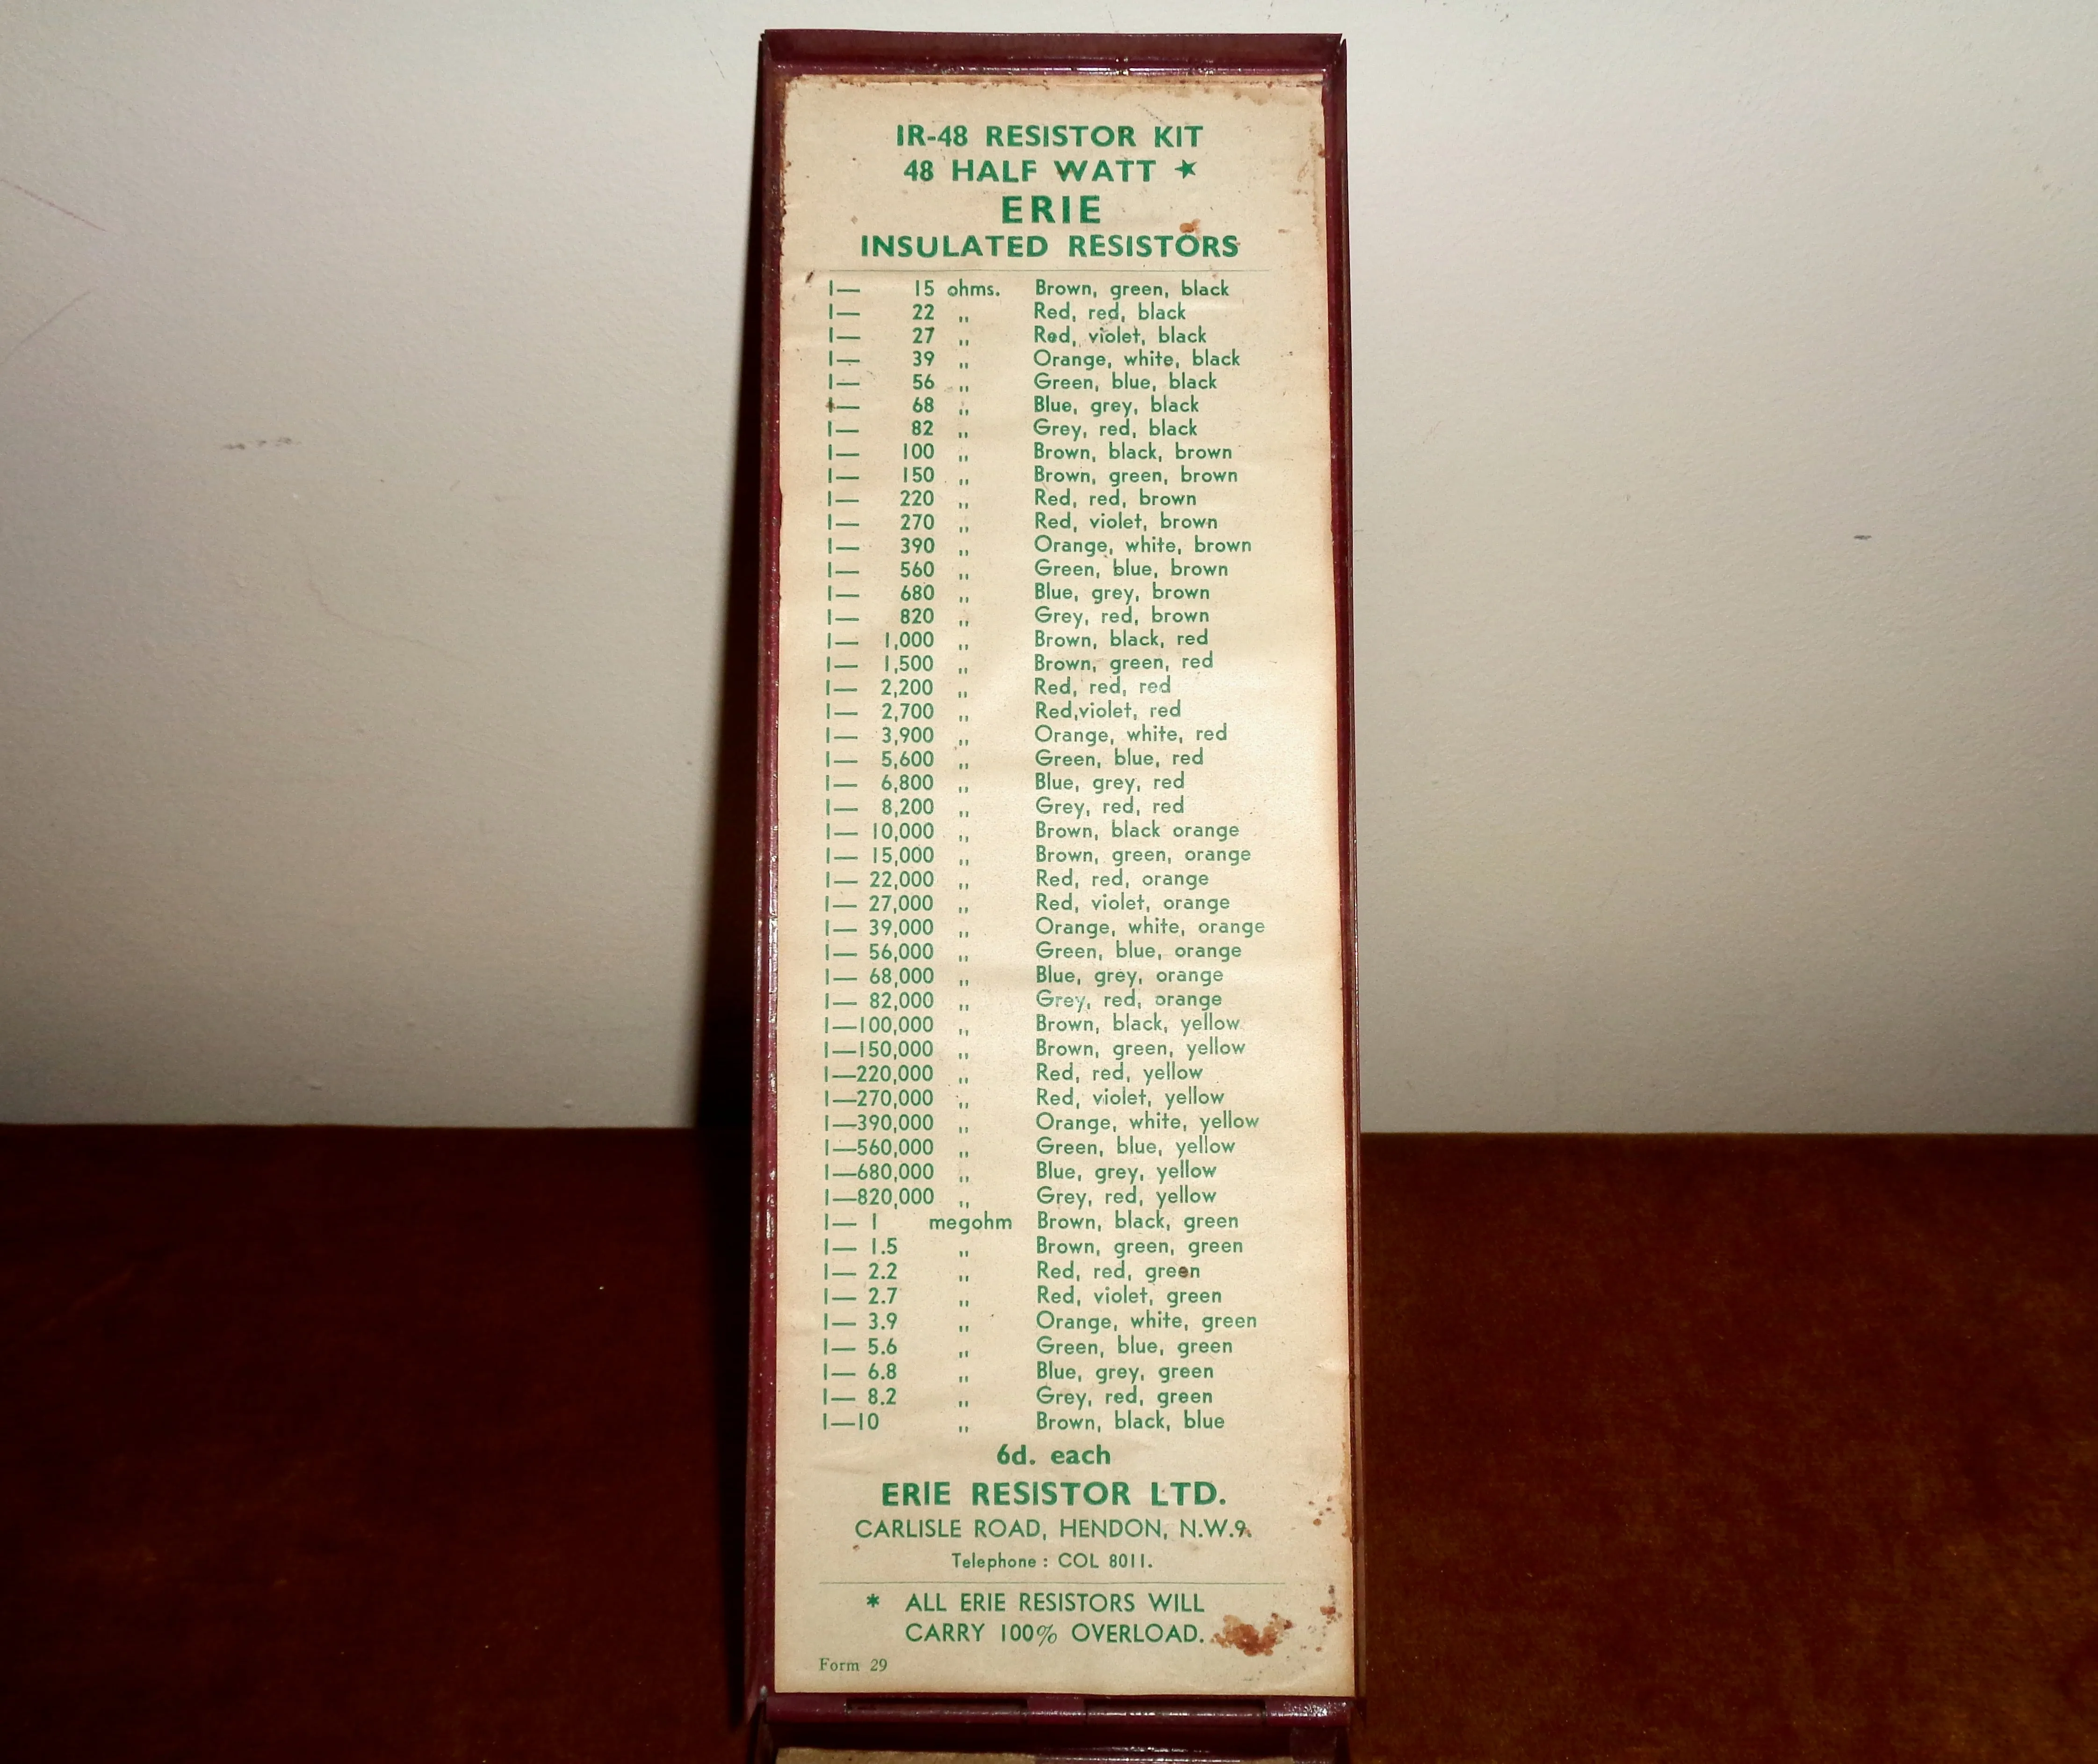 IR-48 RESISTOR KIT
48 HALF WATT ★
ERIE
INSULATED RESISTORS
1— 15 ohms. Brown, green, black
1— 22 ,, Red, red, black
1— 27 ,, Red, violet, black
1— 39 ,, Orange, white, black
1— 56 ,, Green, blue, black
1— 68 ,, Blue, grey, black
1— 82 ,, Grey, red, black
1— 100 ,, Brown, black, brown
1— 150 ,, Brown, green, brown
1— 220 ,, Red, red, brown
1— 270 ,, Red, violet, brown
1— 390 ,, Orange, white, brown
1— 560 ,, Green, blue, brown
1— 680 ,, Blue, grey, brown
1— 820 ,, Grey, red, brown
1— 1,000 ,, Brown, black, red
1— 1,500 ,, Brown, green, red
1— 2,200 ,, Red, red, red
1— 2,700 ,, Red,violet, red
1— 3,900 ,, Orange, white, red
1— 5,600 ,, Green, blue, red
1— 6,800 ,, Blue, grey, red
1— 8,200 ,, Grey, red, red
1— 10,000 ,, Brown, black orange
1— 15,000 ,, Brown, green, orange
1— 22,000 ,, Red, red, orange
1— 27,000 ,, Red, violet, orange
1— 39,000 ,, Orange, white, orange
1— 56,000 ,, Green, blue, orange
1— 68,000 ,, Blue, grey, orange
1— 82,000 ,, Grey, red, orange
1—100,000 ,, Brown, black, yellow
1—150,000 ,, Brown, green, yellow
1—220,000 ,, Red, red, yellow
1—270,000 ,, Red, violet, yellow
1—390,000 ,, Orange, white, yellow
1—560,000 ,, Green, blue, yellow
1—680,000 ,, Blue, grey, yellow
1—820,000 ,, Grey, red, yellow
1— 1 megohm Brown, black, green
1— 1.5 ,, Brown, green, green
1— 2.2 ,, Red, red, green
1— 2.7 ,, Red, violet, green
1— 3.9 ,, Orange, white, green
1— 5.6 ,, Green, blue, green
1— 6.8 ,, Blue, grey, green
1— 8.2 ,, Grey, red, green
1—10 ,, Brown, black, blue
6d. each
ERIE RESISTOR LTD.
CARLISLE ROAD, HENDON, N.W.9.
Telephone : COL 8011.
* ALL ERIE RESISTORS WILL
CARRY 100% OVERLOAD.
Form 29